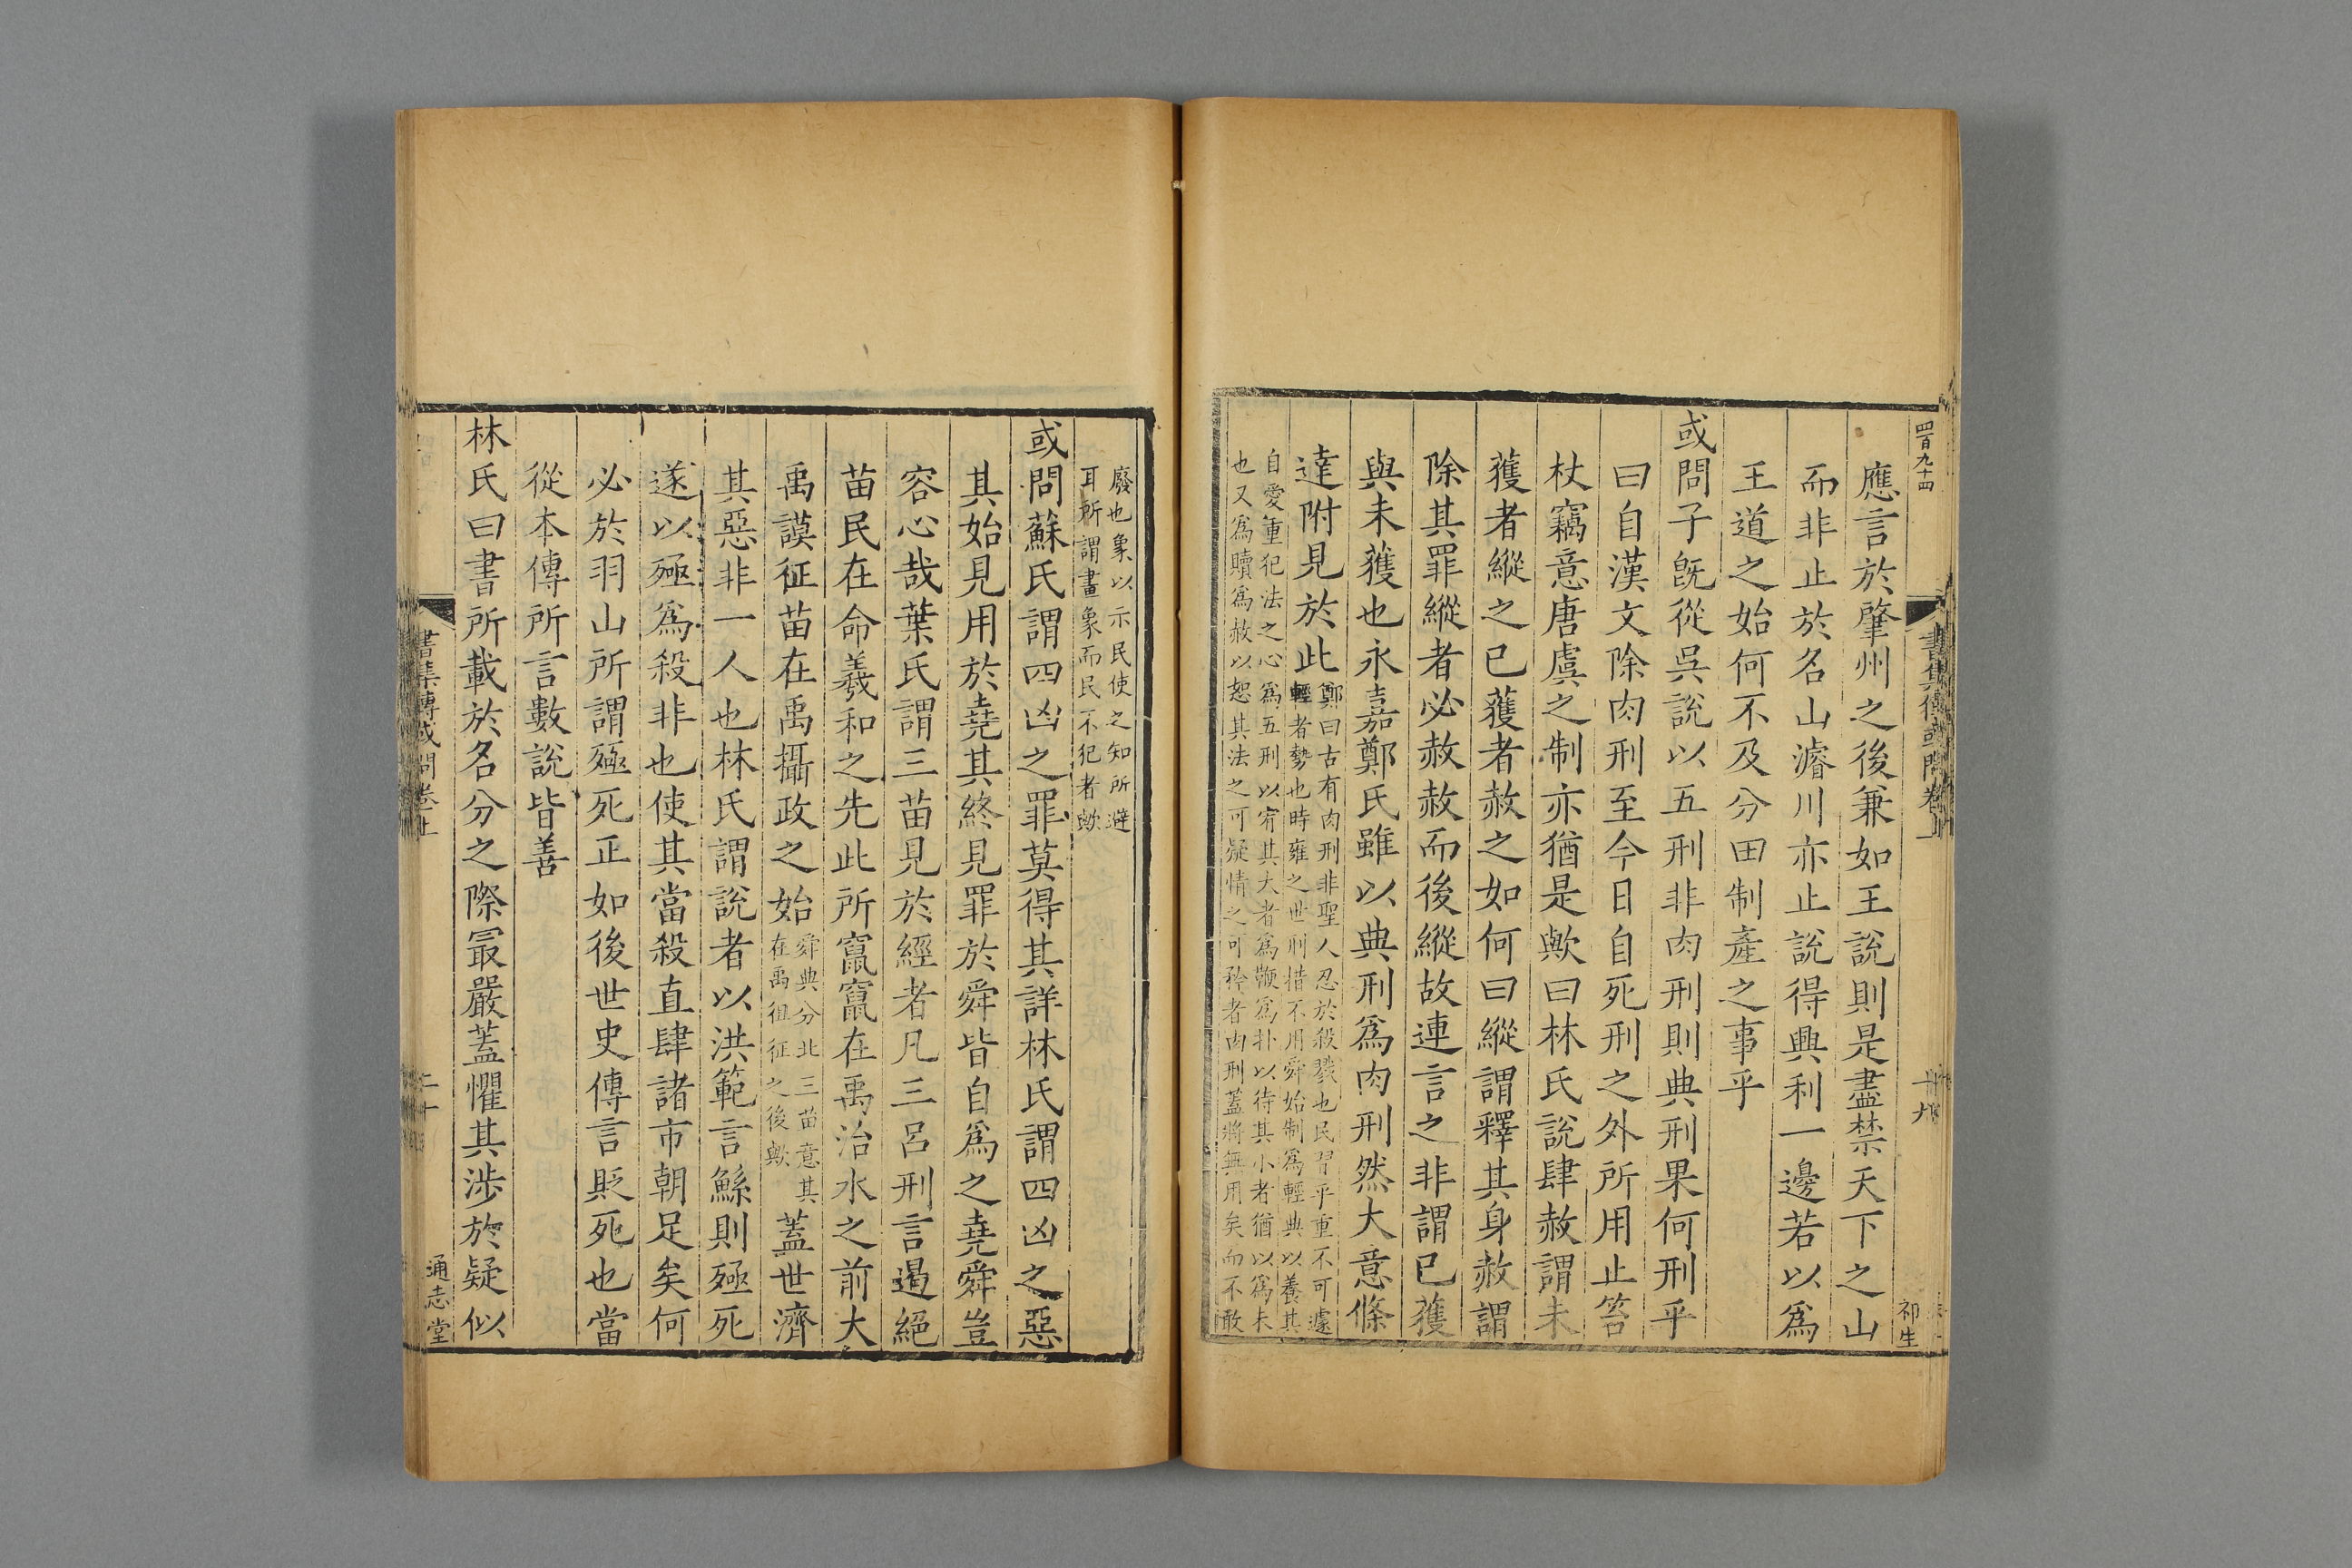 四百九十四
書集傳或問卷上
十九
祁生
應言於肇州之後兼如王說則是盡禁天下之山
而非止於名山濬川亦止說得興利一邊若以爲
王道之始何不及分田制產之事乎
或問子旣從吳說以五刑非肉刑則典刑果何刑乎
曰自漢文除肉刑至今日自死刑之外所用止笞
杖竊意唐虞之制亦猶是歟曰林氏說肆赦謂未
獲者縱之已獲者赦之如何曰縱謂釋其身赦謂
除其罪縱者必赦赦而後縱故連言之非謂已獲
與未獲也永嘉鄭氏雖以典刑爲肉刑然大意條
達附見於此
鄭曰古有肉刑非聖人忍於殺戮也民習乎重不可遽
輕者勢也時雍之世刑措不用舜始制爲輕典以養其
自愛重犯法之心爲五刑以宥其大者爲鞭爲扑以待其小者猶以爲未
也又爲贖爲赦以恕其法之可疑情之可矜者肉刑蓋將無用矣而不敢
廢也象以示民使之知所避
耳所謂畫象而民不犯者歟
或問蘇氏謂四凶之罪莫得其詳林氏謂四凶之惡
其始見用於堯其終見罪於舜皆自爲之堯舜豈
容心哉葉氏謂三苗見於經者凡三呂刑言遏絕
苗民在命羲和之先此所竄竄在禹治水之前大
禹謨征苗在禹攝政之始
舜典分北三苗意其
在禹徂征之後歟
蓋世濟
其惡非一人也林氏謂說者以洪範言鯀則殛死
遂以殛爲殺非也使其當殺直肆諸市朝足矣何
必於羽山所謂殛死正如後世史傳言貶死也當
從本傳所言數說皆善
林氏曰書所載於名分之際㝡嚴蓋懼其涉於疑似
書集傳或問卷上
二十
通志堂